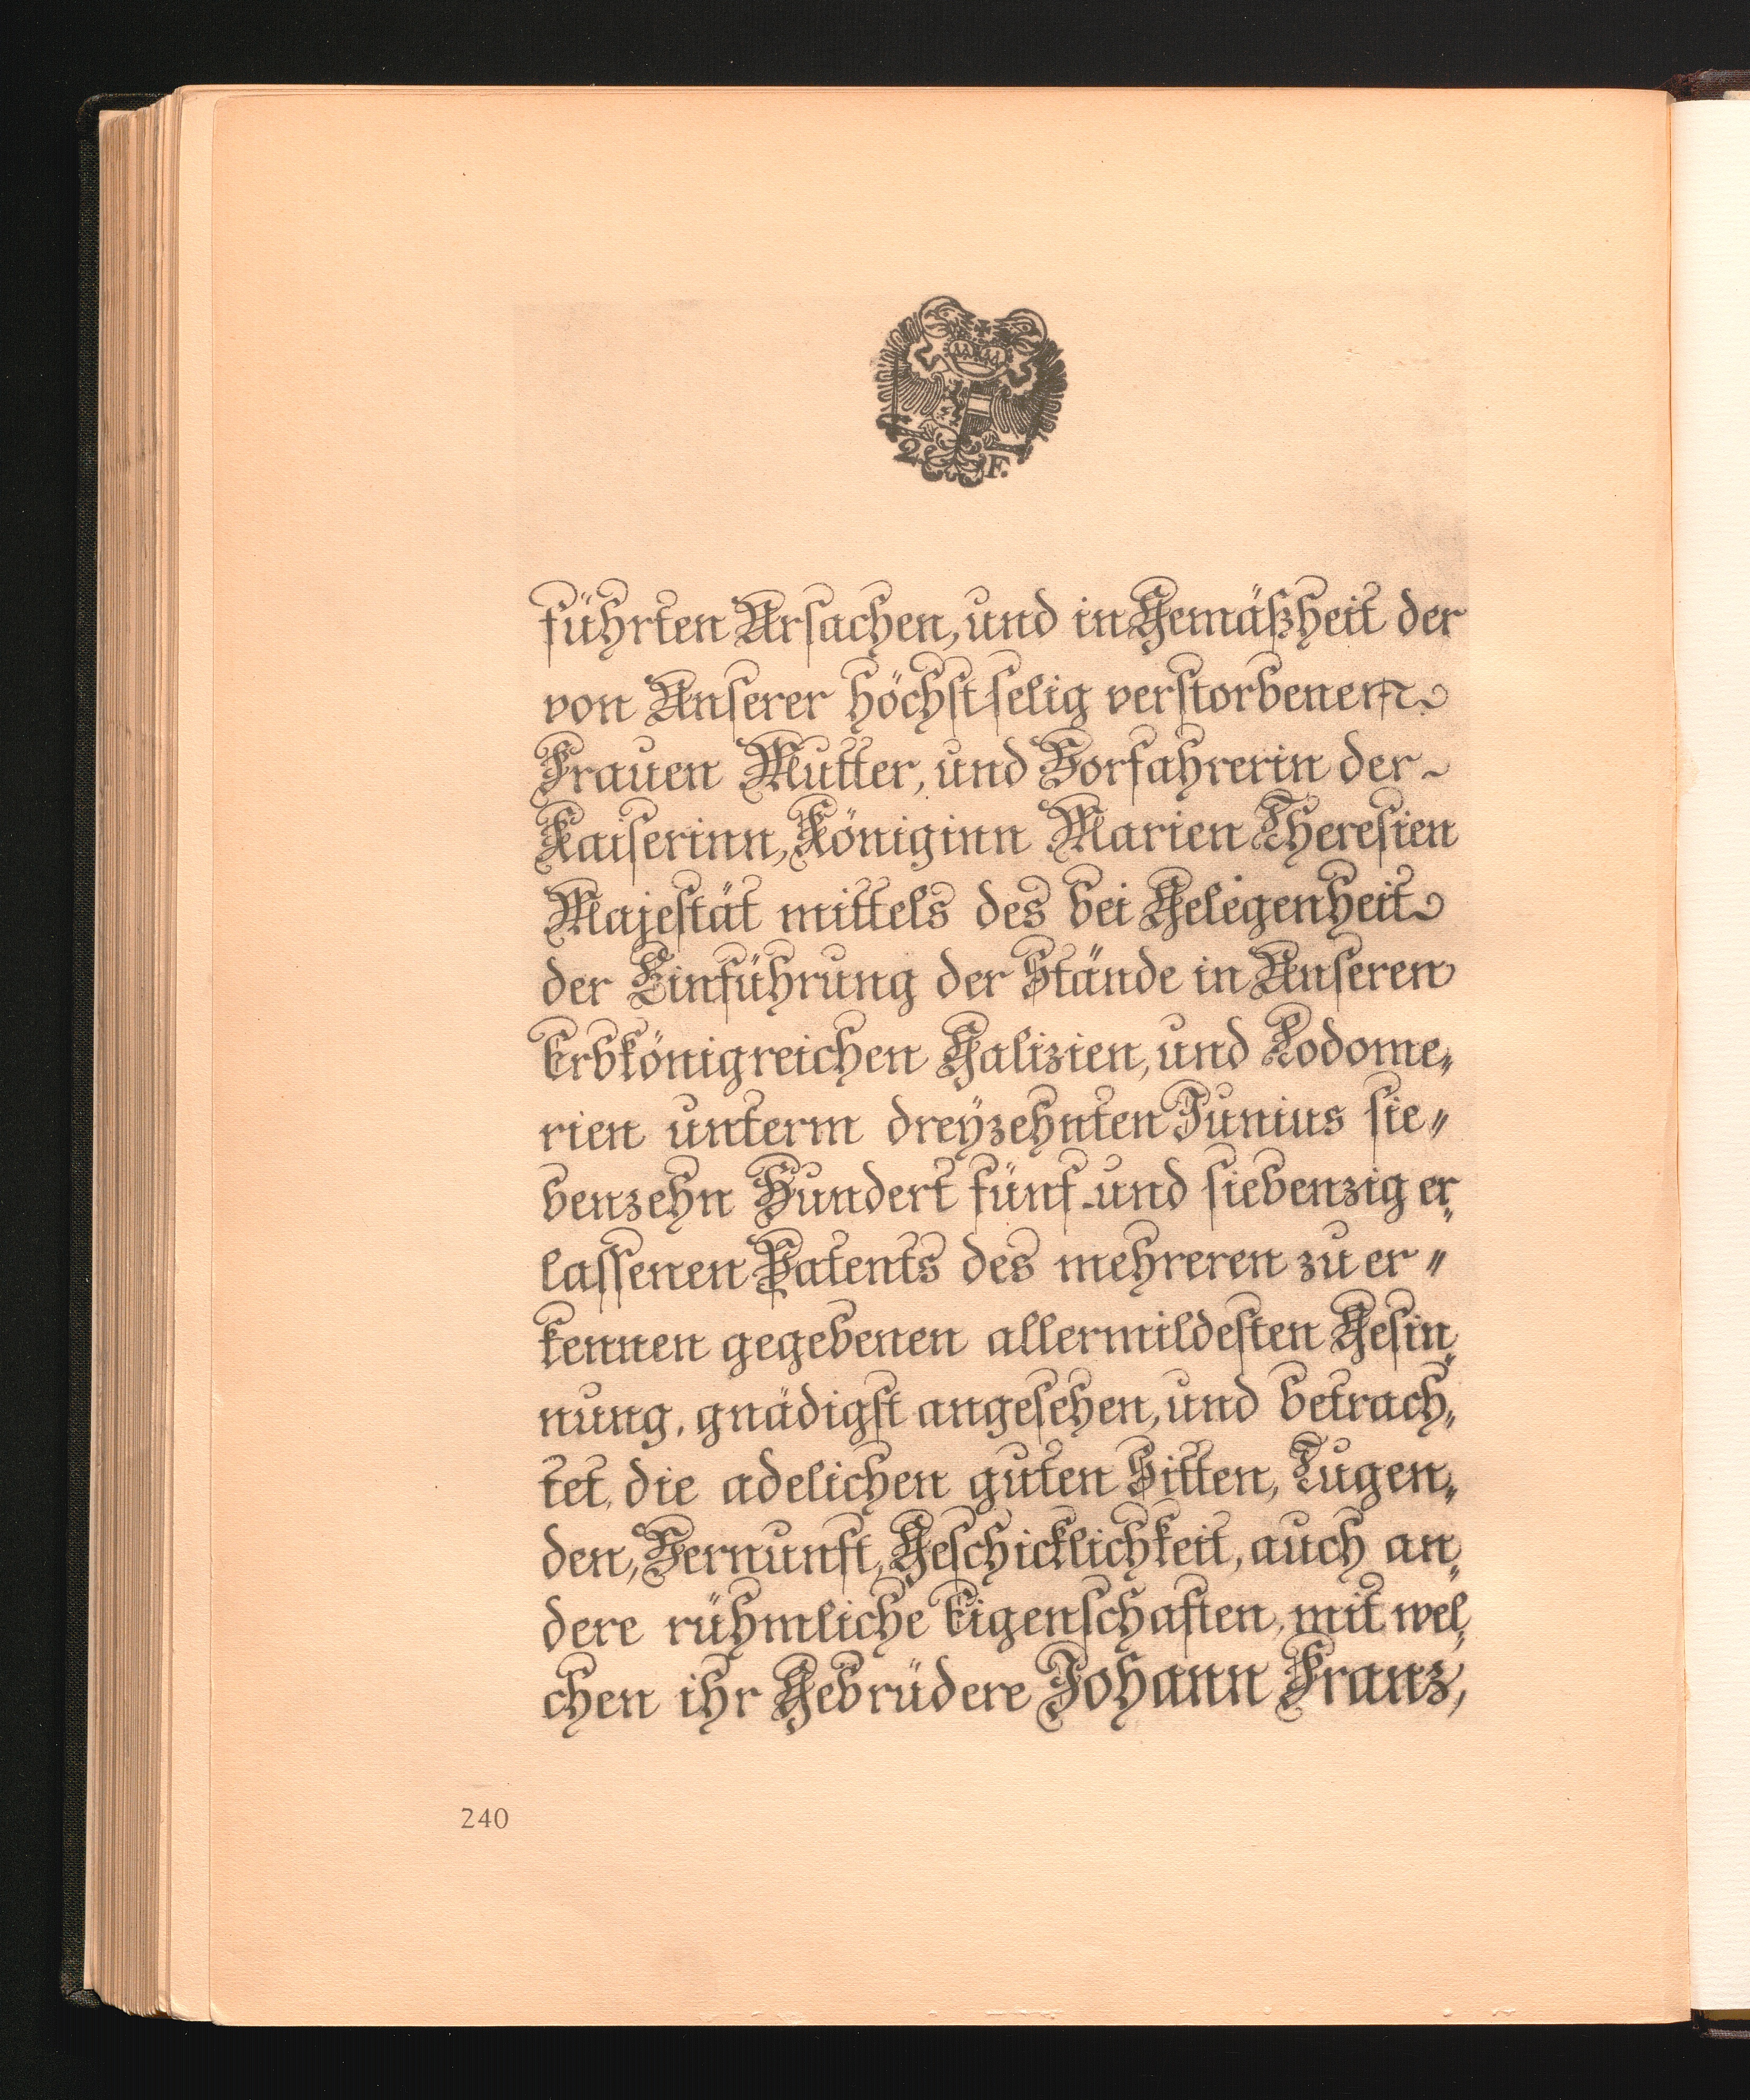 2 F.
führten Ursachen, und in Gemäßheit der
von Unserer höchst selig verstorbenen
Frauen Mutter, und Vorfahrerin der
Kaiserinn, Königinn Marien Theresien
Majestät mittels des bei Gelegenheit
der Einführung der Stände in Unseren
Erbkönigreichen Galizien, und Lodome„
rien unterm dreÿzehnten Junius sie„
benzehn Hundert fünf und siebenzig er„
lassenen Patents des mehreren zu er„
kennen gegebenen allermildesten Gesin„
nung, gnädigst angesehen, und betrach„
tet, die adelichen guten Sitten, Tugen„
den, Vernunft, Geschicklichkeit, auch an„
dere rühmliche Eigenschaften, mit wel„
chen ihr Gebrüdere Johann Franz,
240